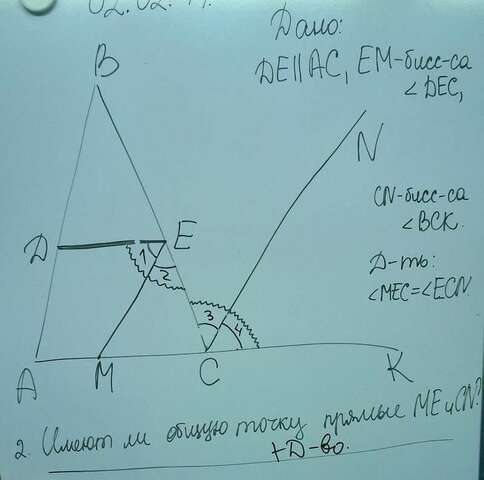 02.02.
Дано:
DE||AC, EM-бисс-са
<DEC,
B
N
CN-бисс-са
<BCK.
Д-ть:
<MEC=<ECN.
D
E
1
2
3
4
A
M
C
K
2. Имеют ли общую точку прямые ME и CN?
+Д-во.